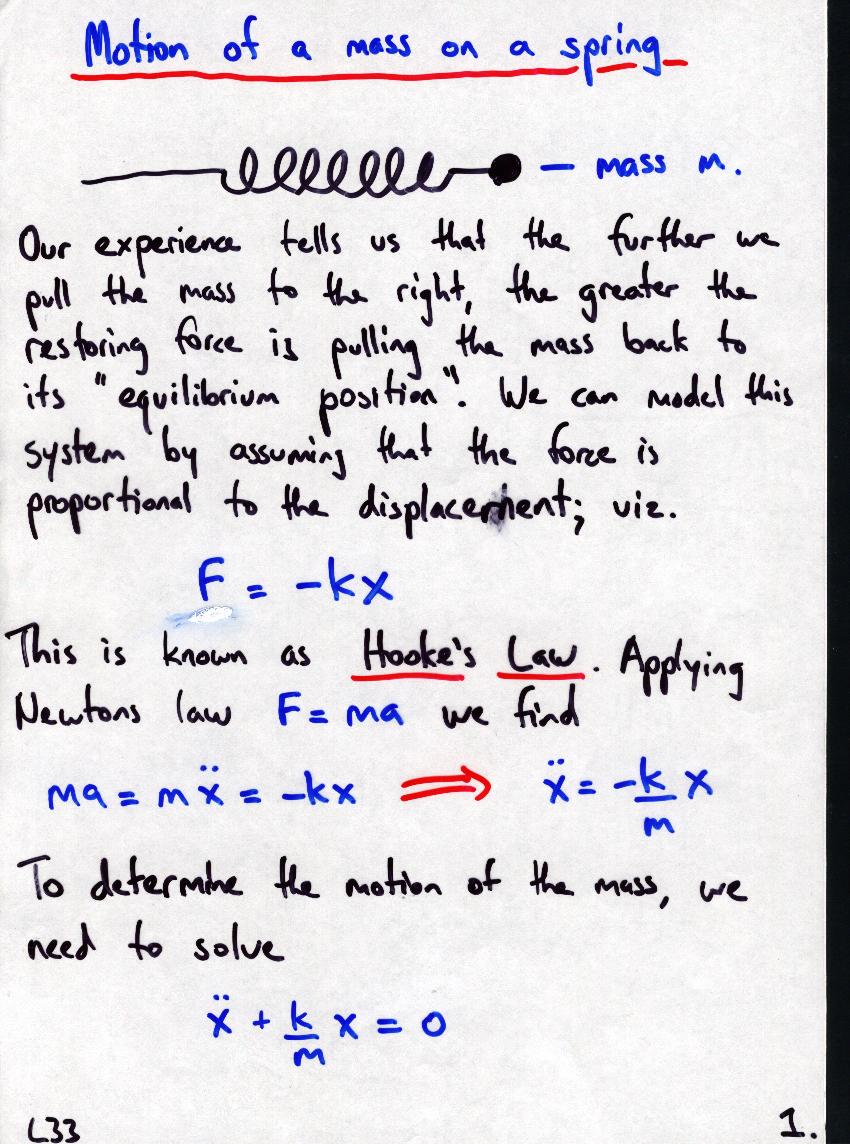 Motion of a mass on a spring
— mass m.
Our experience tells us that the further we
pull the mass to the right, the greater the
restoring force is pulling the mass back to
its "equilibrium position". We can model this
system by assuming that the force is
proportional to the displacement; viz.
F = -kx
This is known as Hooke's Law. Applying
Newtons law F = ma we find
ma = mẍ = -kx ⟹ ẍ = -k/m x
To determine the motion of the mass, we
need to solve
ẍ + k/m x = 0
L33 1.